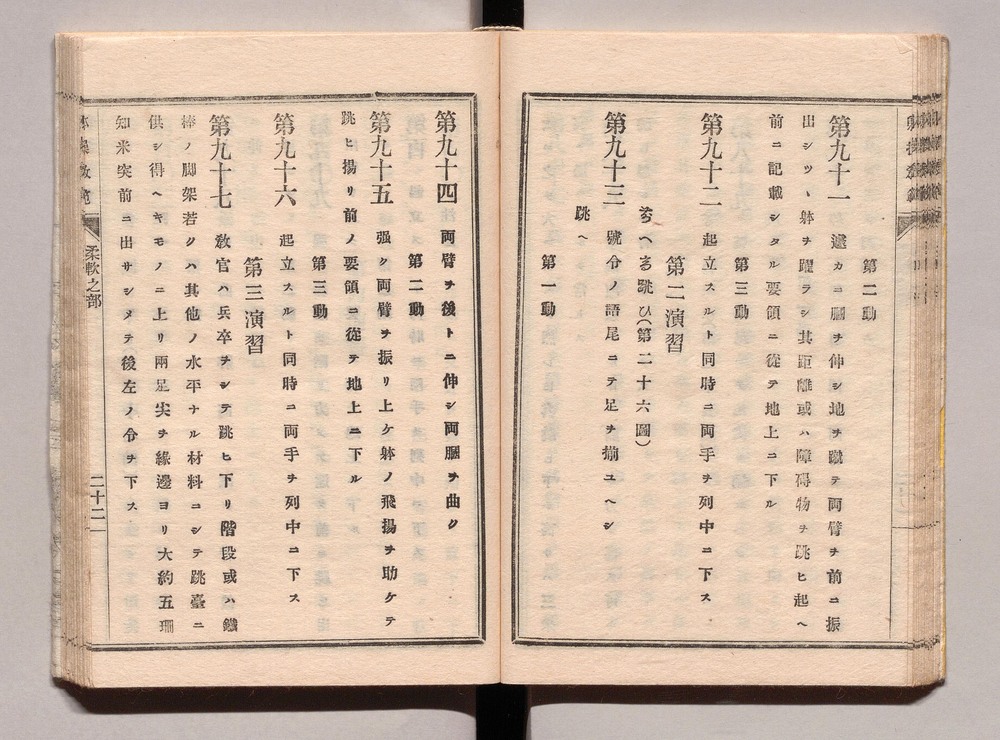 第二動
第九十一 遽カニ膕ヲ伸シ地ヲ蹴テ両臂ヲ前ニ振
出シツヽ躰ヲ躍ラシ其距離或ハ障碍物ヲ跳ヒ起ヘ
前ニ記載シタル要領ニ從テ地上ニ下ル
第三動
第九十二 起立スルト同時ニ両手ヲ列中ニ下ス
第二演習
跳ひ(第二十六圖)
第九十三 號令ノ語尾ニテ足ヲ揃ユヘシ
跳ヘ
第一動
第九十四 両臂ヲ後トニ伸シ両膕ヲ曲ク
第二動
第九十五 强ク両臂ヲ振リ上ケ躰ノ飛揚ヲ助ケテ
跳ヒ揚リ前ノ要領ニ從テ地上ニ下ル
第三動
第九十六 起立スルト同時ニ両手ヲ列中ニ下ス
第三演習
第九十七 敎官ハ兵卒ヲシテ跳ヒ下リ階段或ハ鐵
棒ノ脚架若クハ其他ノ水平ナル材料ニシテ跳臺ニ
供シ得ヘキモノニ上リ兩足尖ヲ緣邊ヨリ大約五珊
知米突前ニ出サシメテ後左ノ令ヲ下ス
柔軟之部
二十二